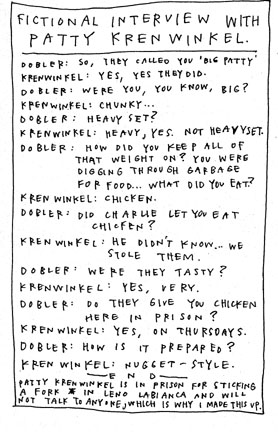 FICTIONAL INTERVIEW WITH
PATTY KRENWINKEL.
DOBLER: SO, THEY CALLED YOU 'BIG PATTY'
KRENWINKEL: YES, YES THEY DID.
DOBLER: WERE YOU, YOU KNOW, BIG?
KRENWINKEL: CHUNKY...
DOBLER: HEAVY SET?
KRENWINKEL: HEAVY, YES. NOT HEAVYSET.
DOBLER: HOW DID YOU KEEP ALL OF
THAT WEIGHT ON? YOU WERE
DIGGING THROUGH GARBAGE
FOR FOOD... WHAT DID YOU EAT?
KRENWINKEL: CHICKEN.
DOBLER: DID CHARLIE LET YOU EAT
CHICKEN?
KRENWINKEL: HE DIDN'T KNOW... WE
STOLE THEM.
DOBLER: WERE THEY TASTY?
KRENWINKEL: YES, VERY.
DOBLER: DO THEY GIVE YOU CHICKEN
HERE IN PRISON?
KRENWINKEL: YES, ON THURSDAYS.
DOBLER: HOW IS IT PREPARED?
KRENWINKEL: NUGGET-STYLE.
END
PATTY KRENWINKEL IS IN PRISON FOR STICKING
A FORK IN LENO LABIANCA AND WILL
NOT TALK TO ANYONE, WHICH IS WHY I MADE THIS UP.